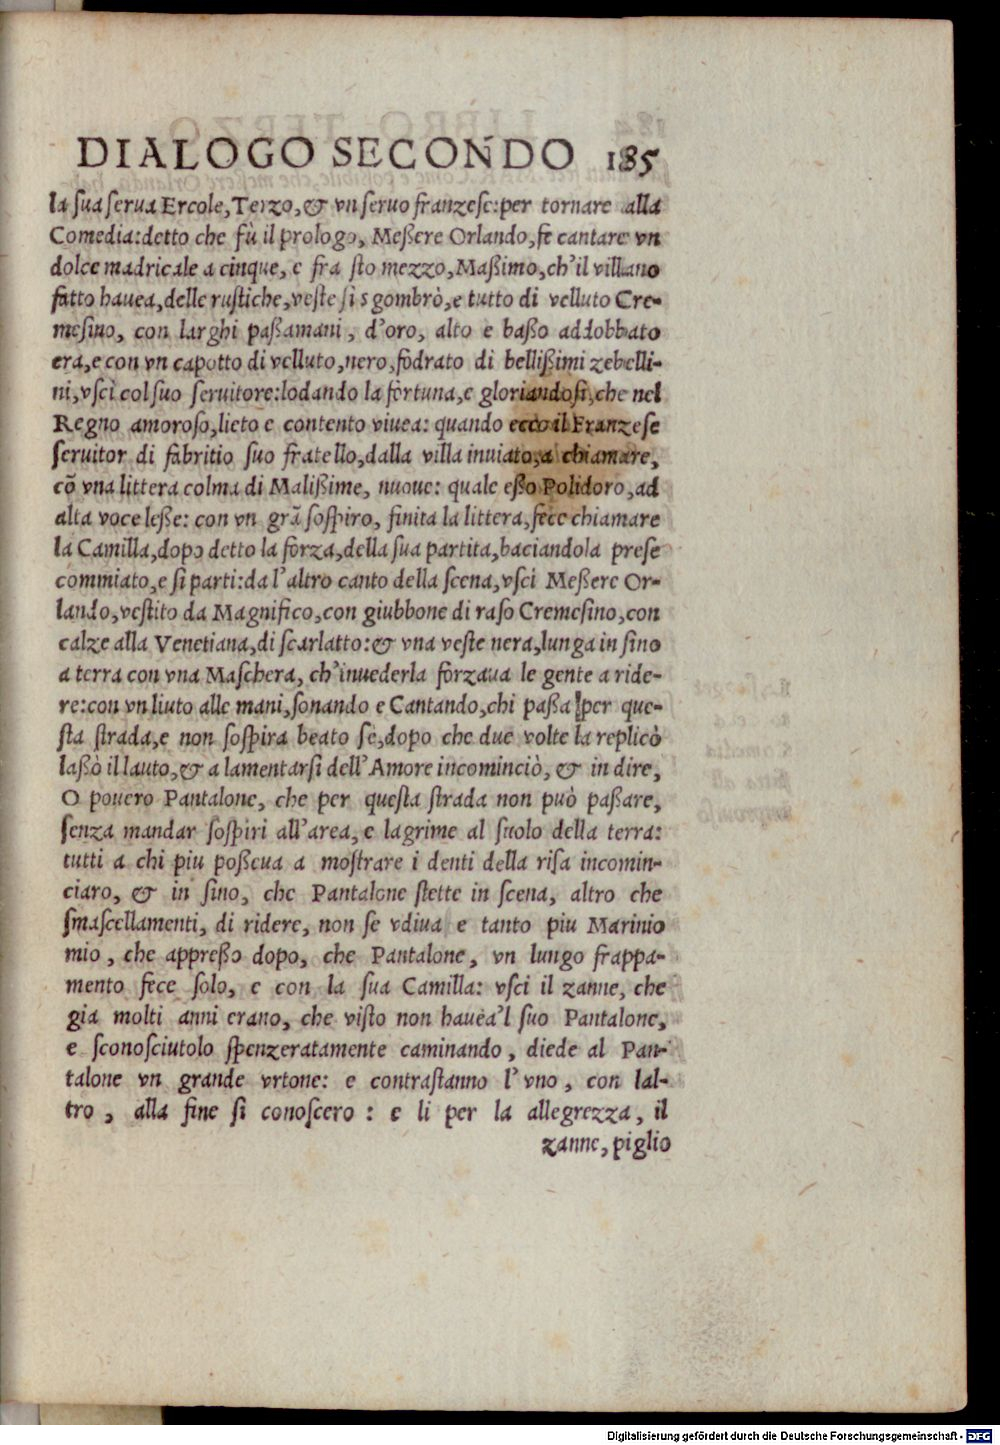 DIALOGO SECONDO 185
la ſua ſerua Ercole, Terzo, & vn ſeruo franzeſe: per tornare alla
Comedia: detto che fù il prologo, Meßere Orlando, fe cantare vn
dolce madricale a cinque, e fra ſto mezzo, Maßimo, ch'il villano
fatto hauea, delle ruſtiche, veſte ſi sgombrò, e tutto di velluto Cre-
meſino, con larghi paßamani, d'oro, alto e baßo addobbato
era, e con vn capotto di velluto, nero, fodrato di bellißimi zebelli-
ni, vſcì col ſuo ſeruitore: lodando la fortuna, e gloriandoſi, che nel
Regno amoroſo, lieto e contento viuea: quando ecco il Franzeſe
ſeruitor di fabritio ſuo fratello, dalla villa inuiato, a chiamare,
cõ vna littera colma di Malißime, nuoue: quale eßo Polidoro, ad
alta voce leße: con vn grã ſoſpiro, finita la littera, fece chiamare
la Camilla, dopo detto la forza, della ſua partita, baciandola preſe
commiato, e ſi parti: da l'altro canto della ſcena, vſcì Meßere Or-
lando, veſtito da Magnifico, con giubbone di raſo Cremeſino, con
calze alla Venetiana, di ſcarlatto: & vna veſte nera, lunga in ſino
a terra con vna Maſchera, ch'inuederla forzaua le gente a ride-
re: con vn liuto alle mani, ſonando e Cantando, chi paßa per que-
ſta ſtrada, e non ſoſpira beato ſe, dopo che due volte la replicò
laßò il lauto, & a lamentarſi dell'Amore incominciò, & in dire,
O pouero Pantalone, che per queſta ſtrada non può paßare,
ſenza mandar ſoſpiri all'area, e lagrime al ſuolo della terra:
tutti a chi piu poßeua a moſtrare i denti della riſa incomin-
ciaro, & in ſino, che Pantalone ſtette in ſcena, altro che
ſmaſcellamenti, di ridere, non ſe vdiua e tanto piu Marinio
mio, che appreßo dopo, che Pantalone, vn lungo frappa-
mento fece ſolo, e con la ſua Camilla: vſci il zanne, che
gia molti anni erano, che viſto non hauea'l ſuo Pantalone,
e ſconoſciutolo ſpenzeratamente caminando, diede al Pan-
talone vn grande vrtone: e contraſtanno l'vno, con lal-
tro, alla fine ſi conoſcero: e li per la allegrezza, il
zanne, piglio
Digitalisierung gefördert durch die Deutsche Forschungsgemeinschaft - DFG